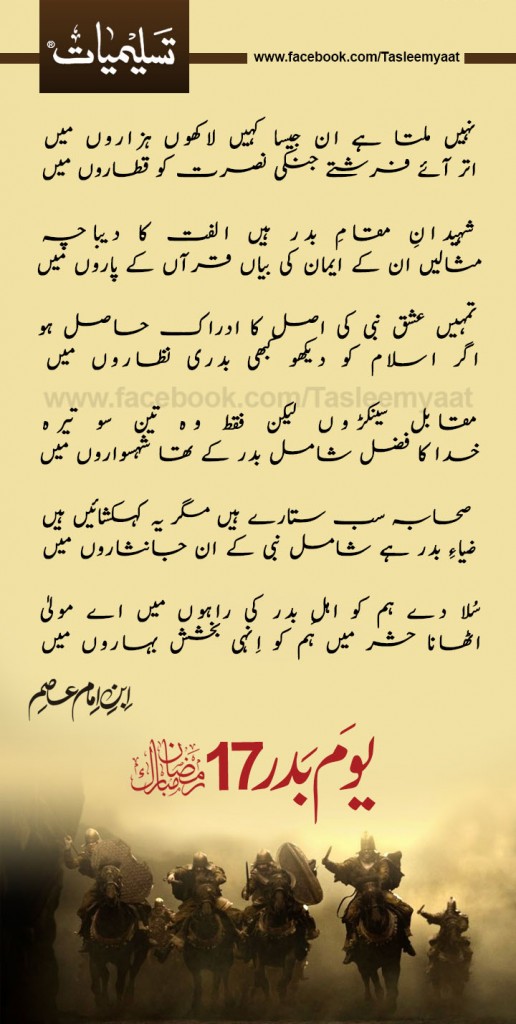 تسلیمیات®
www.facebook.com/Tasleemyaat
نہیں ملتا ہے ان جیسا کہیں لاکھوں ہزاروں میں
اتر آئے فرشتے جنکی نصرت کو قطاروں میں
شہیدانِ مقامِ بدر ہیں الفت کا دیباچہ
مثالیں ان کے ایمان کی بیاں قرآں کے پاروں میں
تمہیں عشق نبی کی اصل کا ادراک حاصل ہو
اگر اسلام کو دیکھو کبھی بدری نظاروں میں
www.facebook.com/Tasleemyaat
مقابل سینکڑوں لیکن فقط وہ تین سو تیرہ
خدا کا فضل شامل بدر کے تھا شہسواروں میں
صحابہ سب ستارے ہیں مگر یہ کہکشائیں ہیں
ضیاءِ بدر ہے شامل نبی کے ان جانثاروں میں
سُلا دے ہم کو اہلِ بدر کی راہوں میں اے مولیٰ
اٹھانا حشر میں ہم کو اِنہی بخشش بہاروں میں
اِبنِ اِمام عاصِم
یومَ بَدر 17 رمضان مبارک